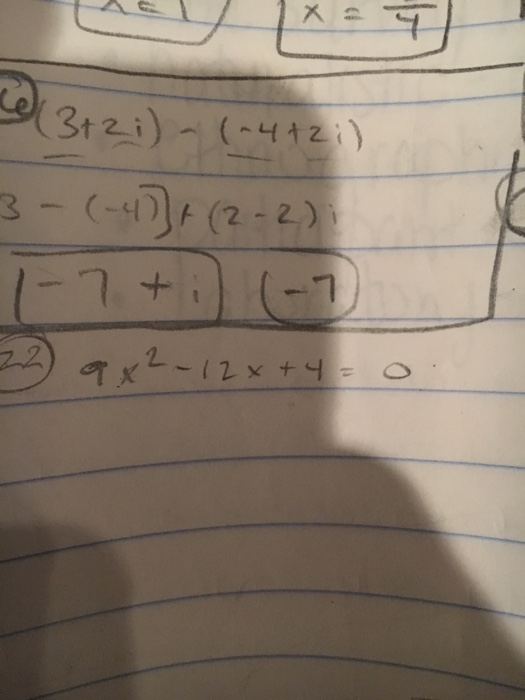 x = 1 x = /4
6 (3+2i) - (-4+2i)
3 - (-4)] + (2-2)i
-7 + i (-7)
22 9x² - 12x + 4 = 0